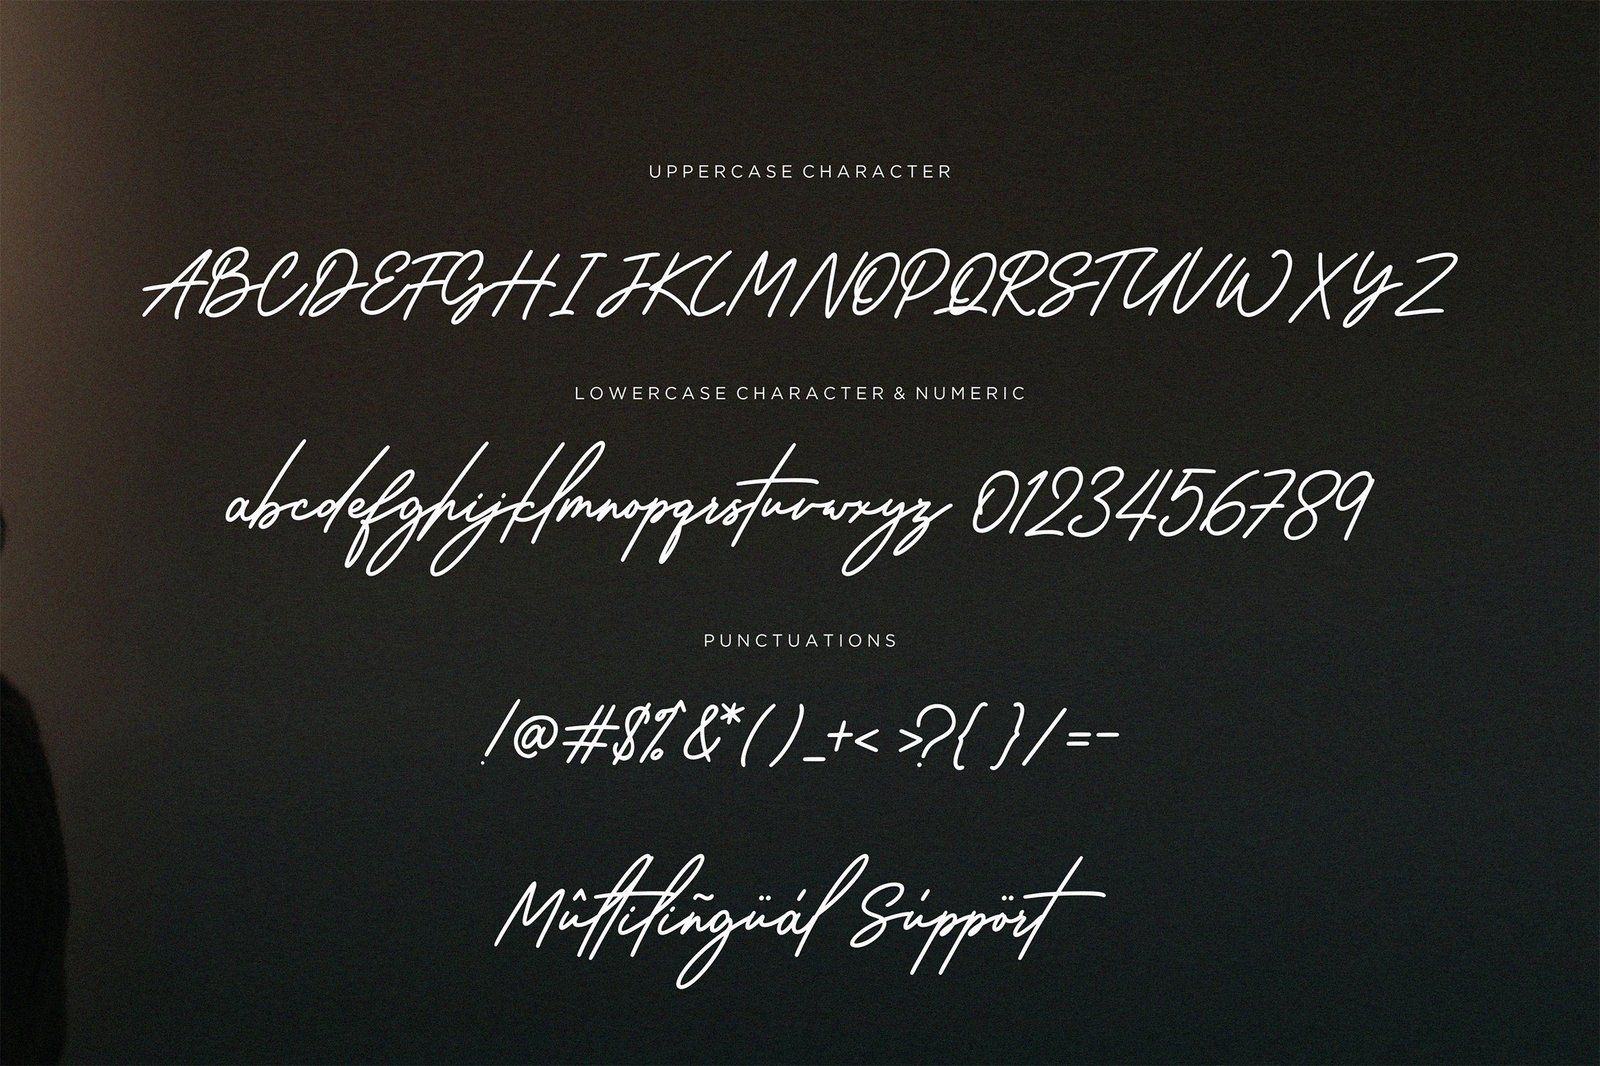 UPPERCASE CHARACTER
ABCDEFGHIJKLMNOPQRSTUVWXYZ
LOWERCASE CHARACTER & NUMERIC
abcdefghijklmnopqrstuvwxyz 0123456789
PUNCTUATIONS
!@#$%&*()_+<>?{}/=-
Mûltiliñgüál Súppört